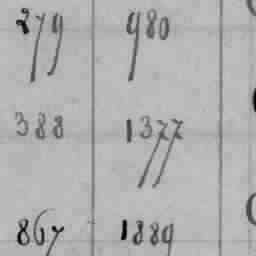 279 980
388 1377
867 1889